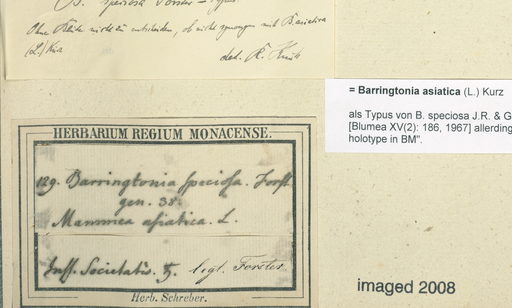 B. speciosa Forster – Typus
Ohne Blüte nicht zu entscheiden, ob nicht synonym mit B. asiatica
(L.) Kurz
det. R.
= Barringtonia asiatica (L.) Kurz
als Typus von B. speciosa J.R. & G
[Blumea XV(2): 186, 1967] allerding
holotype in BM".
HERBARIUM REGIUM MONACENSE.
129. Barringtonia speciosa. Forst
gen. 38.
Mammea asiatica. L.
Inss. Societatis. ♄. legt. Forster
Herb. Schreber.
imaged 2008